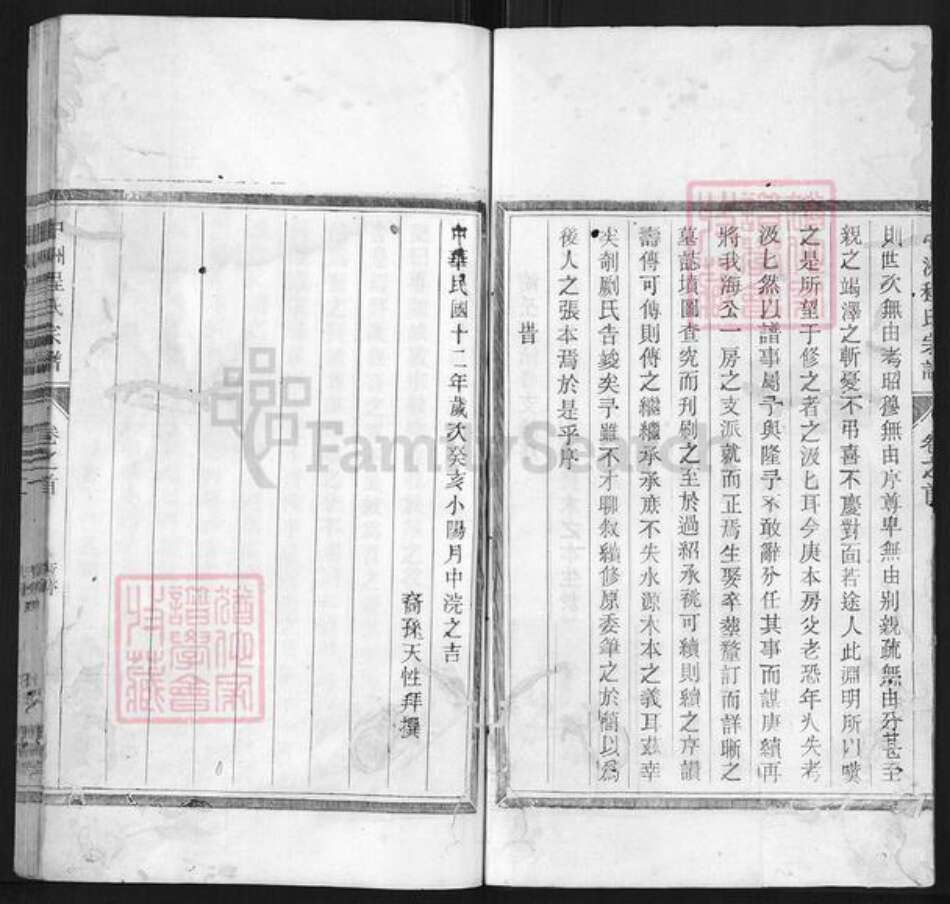 則世次無由考昭穆無由序尊卑無由别親疏無由分甚至
親之竭澤之斬憂不弔喜不慶對面若途人此淵明所以嘆
之是所望于修之者之汲匕耳今庚本房父老恐年久失考
汲匕然以譜事屬予與隆予不敢辭分任其事而謀庚續再
將我海公一房之支派就而正焉生娶卒葬釐訂而詳晰之
墓誌墳圖查究而刊刻之至於過紹承祧可續則續之序韻
壽傳可傳則傳之繼繼承承庶不失水源木本之義耳兹幸
尖剞劂氏告竣矣予雖不才聊叙續修原委筆之於簡以爲
後人之張本焉於是乎序
旹
中華民國十二年歲次癸亥小陽月中浣之吉
裔孫天性拜撰
中洲程氏宗譜
卷之首
FamilySearch
譜學會
收藏